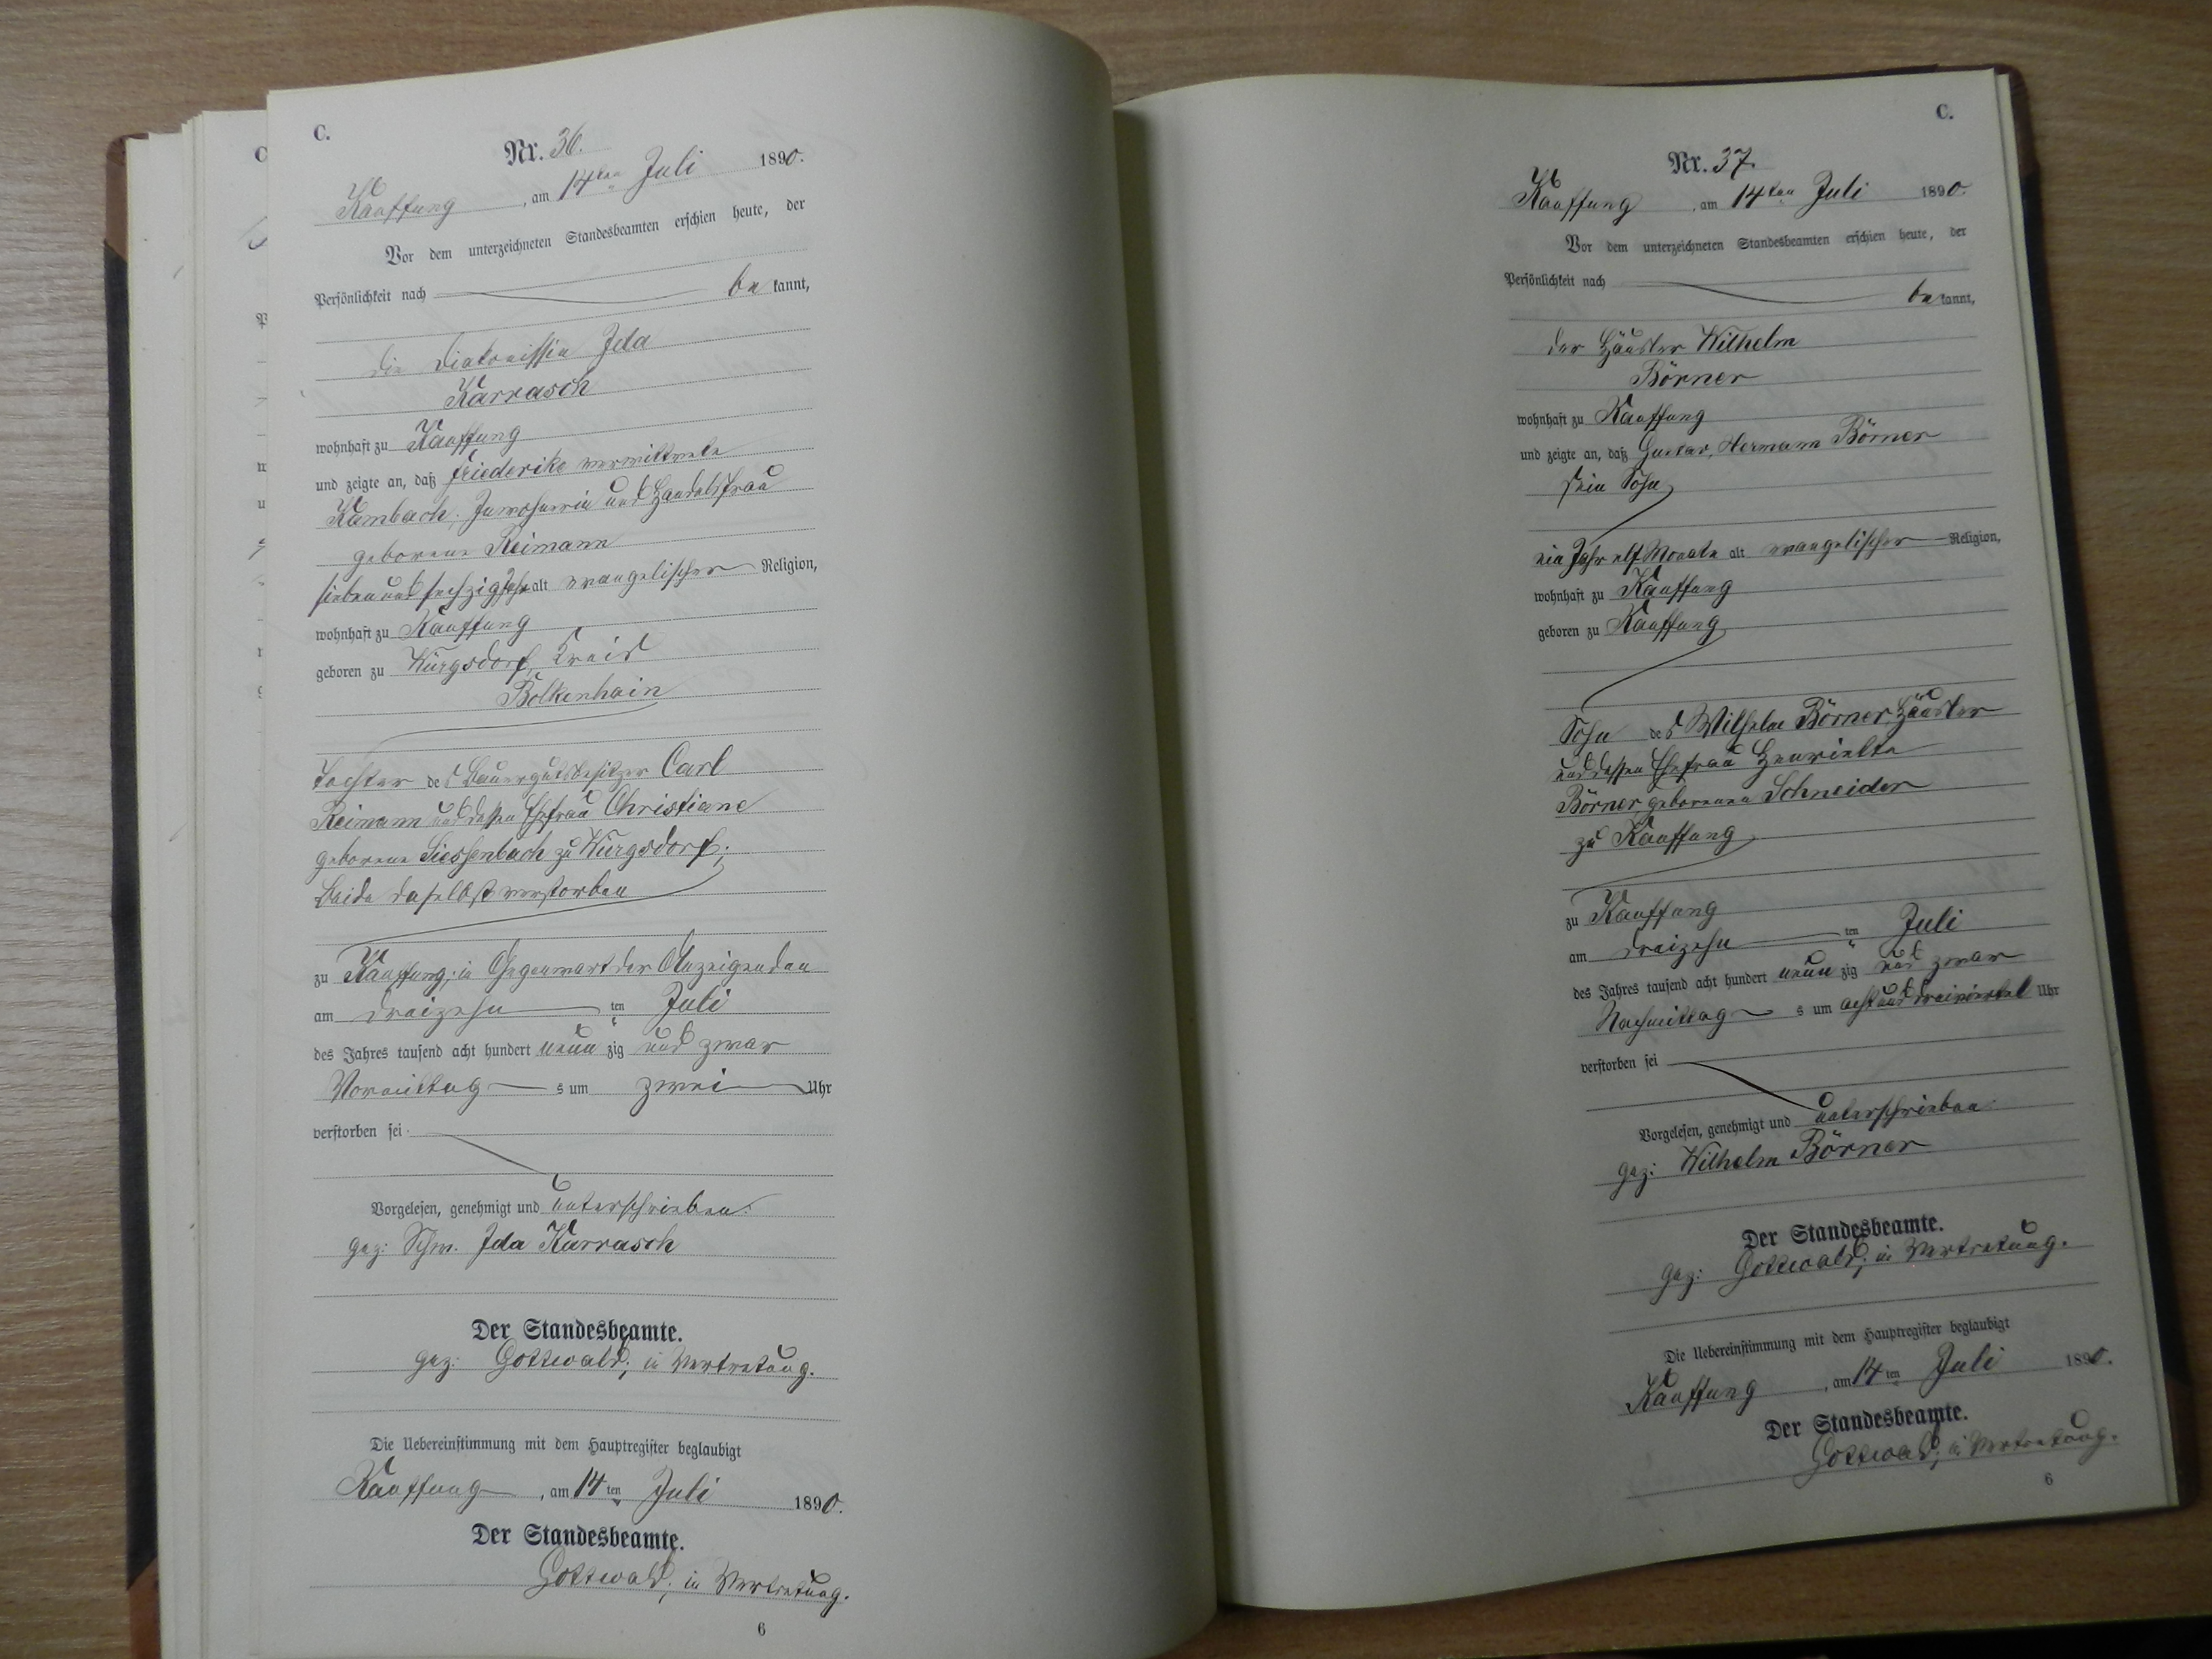 C.
Nr. 36.
Kauffung, am 14ten Juli 1890.
Vor dem unterzeichneten Standesbeamten erschien heute, der
Persönlichkeit nach bekannt,
die Diakonissin Ida
Karrasch
wohnhaft zu Kauffung
und zeigte an, daß Friederike verwittwete
Kambach, Inwohnerin und Handelsfrau
geborene Reimann
siebenundsechzig Jahr alt evangelischer Religion,
wohnhaft zu Kauffung
geboren zu Würgsdorf, Kreis
Bolkenhain
Tochter des Bauergutsbesitzer Carl
Reimann und dessen Ehefrau Christiane
geborene Siessenbach zu Würgsdorf;
beide daselbst verstorben
zu Kauffung; in Gegenwart der Anzeigenden
am dreizehn ten Juli
des Jahres tausend acht hundert neun zig und zwar
Vormittag s um zwei Uhr
verstorben sei
Vorgelesen, genehmigt und unterschrieben.
gez: Schw. Ida Karrasch
Der Standesbeamte.
gez: Gottwald; in Vertretung.
Die Uebereinstimmung mit dem Hauptregister beglaubigt
Kauffung, am 14 ten Juli 1890.
Der Standesbeamte.
Gottwald; in Vertretung.
6
C.
Nr. 37.
Kauffung, am 14ten Juli 1890.
Vor dem unterzeichneten Standesbeamten erschien heute, der
Persönlichkeit nach bekannt,
der Häusler Wilhelm
Börner
wohnhaft zu Kauffung
und zeigte an, daß Gustav, Hermann Börner
sein Sohn
ein Jahr elf Monate alt evangelischer Religion,
wohnhaft zu Kauffung
geboren zu Kauffung
Sohn des Wilhelm Börner Häusler
und dessen Ehefrau Henriette
Börner geborenen Schneider
zu Kauffung
zu Kauffung
am dreizehn ten Juli
des Jahres tausend acht hundert neun zig und zwar
Nachmittag s um acht und dreiviertel Uhr
verstorben sei
Vorgelesen, genehmigt und unterschrieben.
gez: Wilhelm Börner
Der Standesbeamte.
gez: Gottwald; in Vertretung.
Die Uebereinstimmung mit dem Hauptregister beglaubigt
Kauffung, am 14 ten Juli 1890.
Der Standesbeamte.
Gottwald; in Vertretung.
6